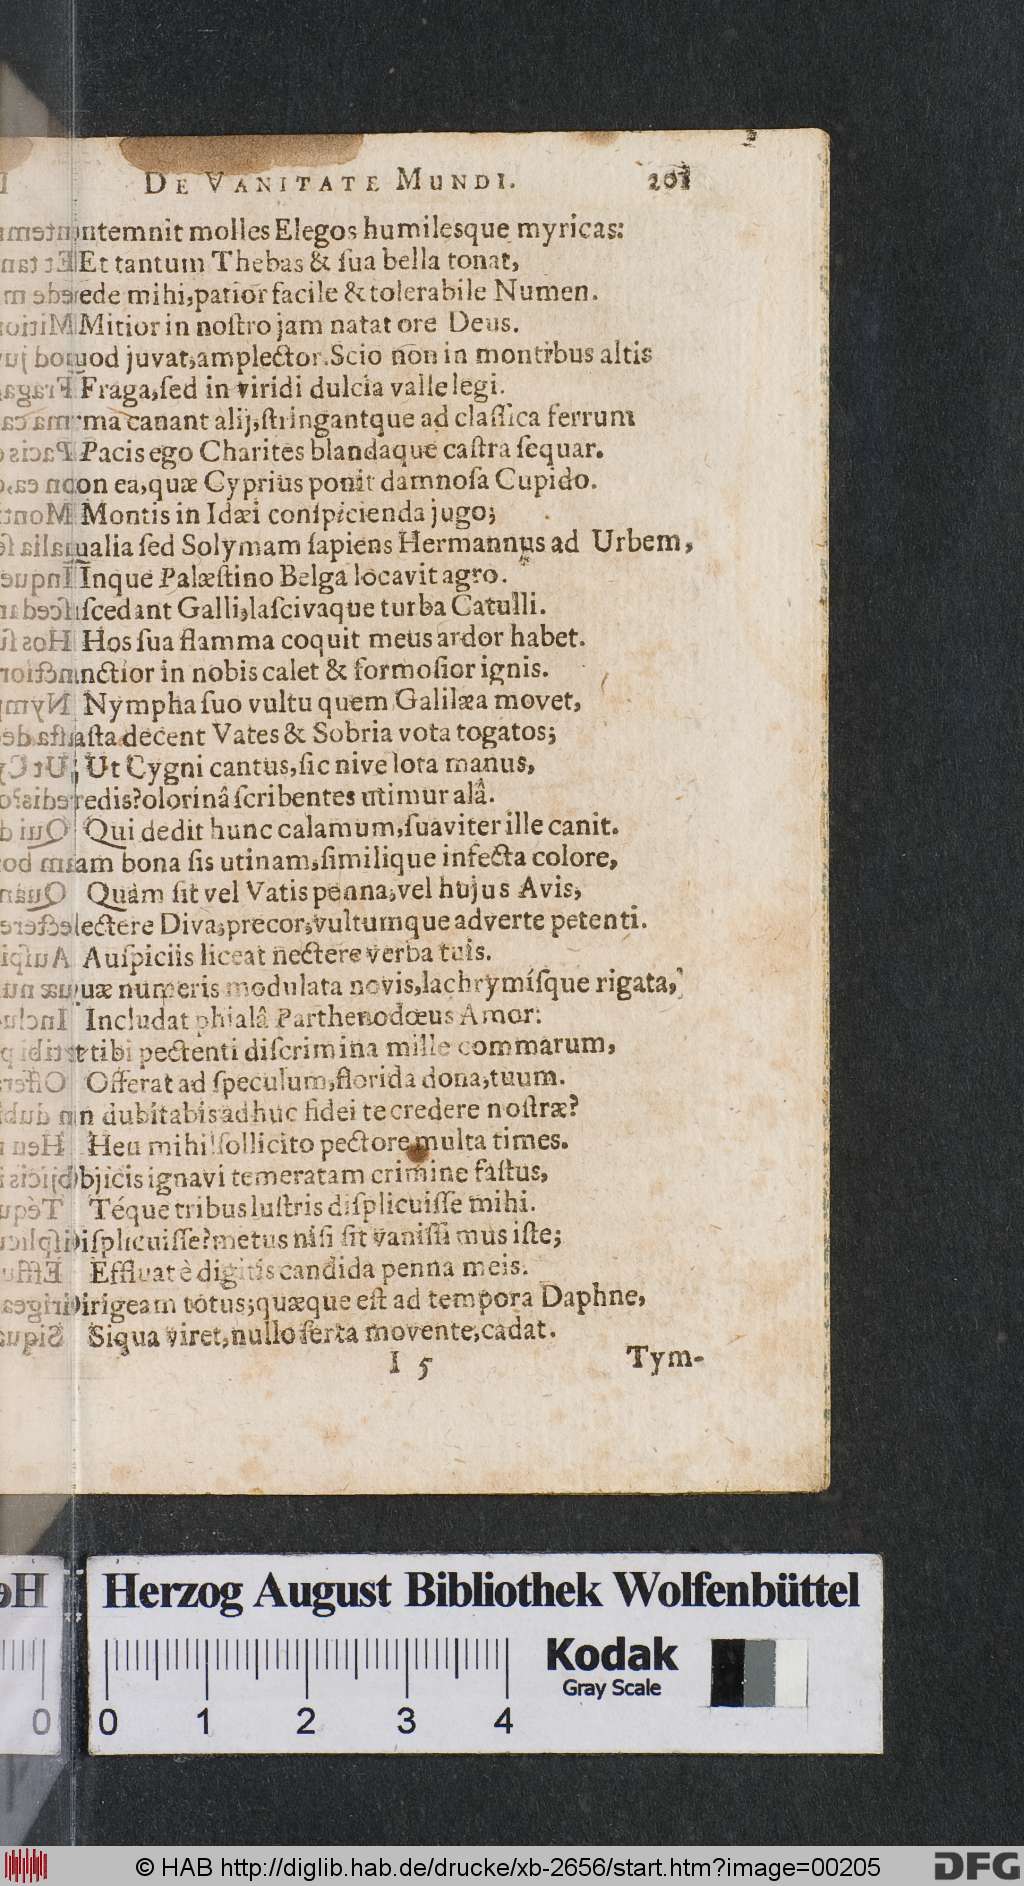 DE VANITATE MUNDI. 201
ntemnit molles Elegos humilesque myricas:
Et tantum Thebas & ſua bella tonat,
ede mihi, patior facile & tolerabile Numen.
Mitior in noſtro jam natat ore Deus.
uod juvat, amplector. Scio non in montibus altis
Fraga, ſed in viridi dulcia valle legi.
ma canant alij, ſtringantque ad claſſica ferrum
Pacis ego Charites blandaque caſtra ſequar.
on ea, quæ Cyprius ponit damnoſa Cupido.
Montis in Idæi conſpicienda jugo;
ualia ſed Solymam ſapiens Hermannus ad Urbem,
Inque Palæſtino Belga locavit agro.
ſcedant Galli, laſcivaque turba Catulli.
Hos ſua flamma coquit meus ardor habet.
nctior in nobis calet & formoſior ignis.
Nympha ſuo vultu quem Galilæa movet,
aſta decent Vates & Sobria vota togatos;
Ut Cygni cantus, ſic nive lota manus,
redis? olorinâ ſcribentes utimur alâ.
Qui dedit hunc calamum, ſuaviter ille canit.
am bona ſis utinam, ſimilique infecta colore,
Quàm ſit vel Vatis penna, vel hujus Avis,
lectere Diva, precor, vultumque adverte petenti.
Auſpiciis liceat nectere verba tuis.
uæ numeris modulata novis, lachrymíſque rigata,
Includat phialâ Parthenodœus Amor:
t tibi pectenti diſcrimina mille commarum,
Offerat ad ſpeculum, florida dona, tuum.
n dubitabis adhuc fidei te credere noſtræ?
Heu mihi! ſollicito pectore multa times.
bjicis ignavi temeratam crimine faſtus,
Téque tribus luſtris diſplicuiſſe mihi.
Diſplicuiſſe? metus niſi ſit vaniſſimus iſte;
Effluat è digitis candida penna meis.
Dirigeam totus; quæque eſt ad tempora Daphne,
Siqua viret, nullo ſerta movente, cadat.
I 5 Tym-
Herzog August Bibliothek Wolfenbüttel
Kodak
Gray Scale
0 0 1 2 3 4
© HAB http://diglib.hab.de/drucke/xb-2656/start.htm?image=00205 DFG